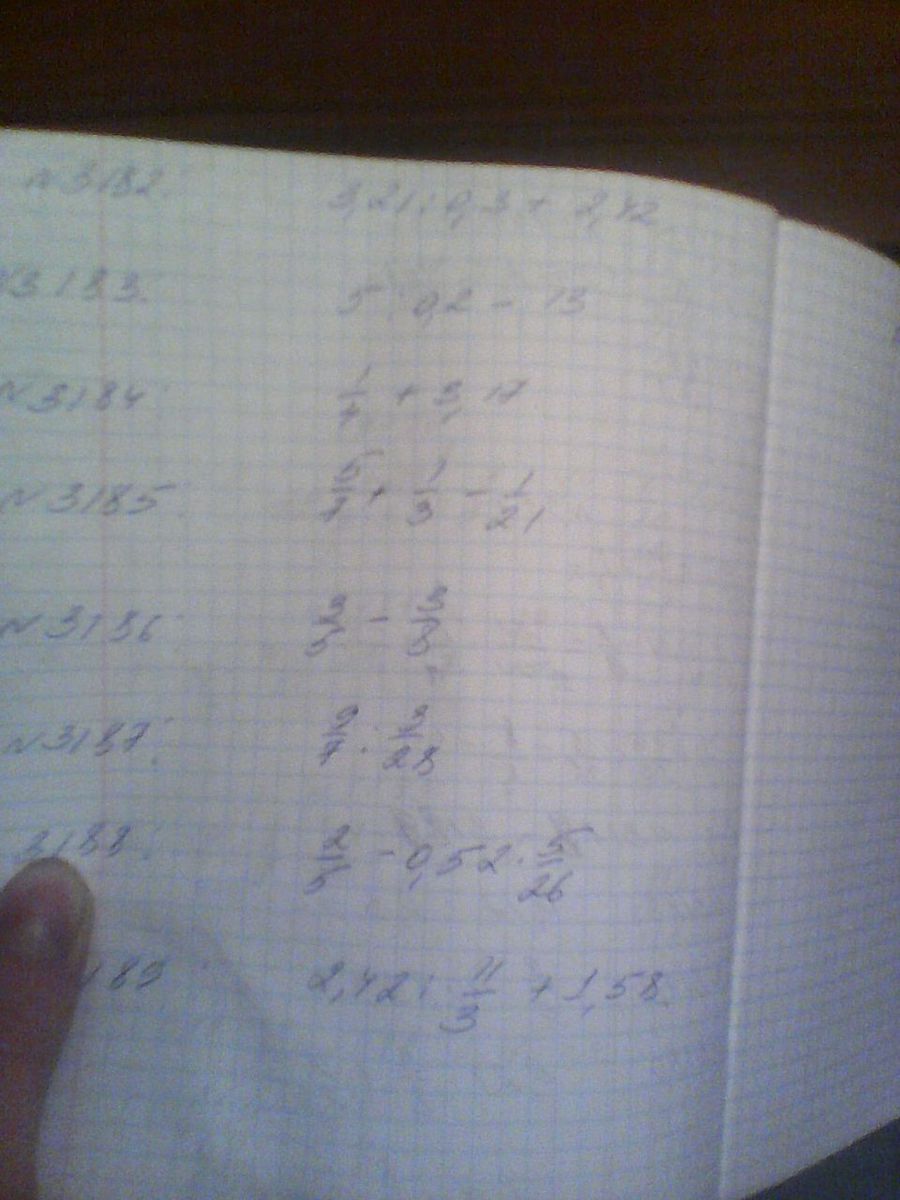 N3182. 3,21 : 0,3 + 2,42
N3183. 5 : 0,2 - 13
N3184. 1/7 + 3,17
N3185. 5/7 + 1/3 - 1/21
N3186
N3187.
3188. 2/5 - 0,52 · 5/26
189 2,42 : 11/3 + 1,58